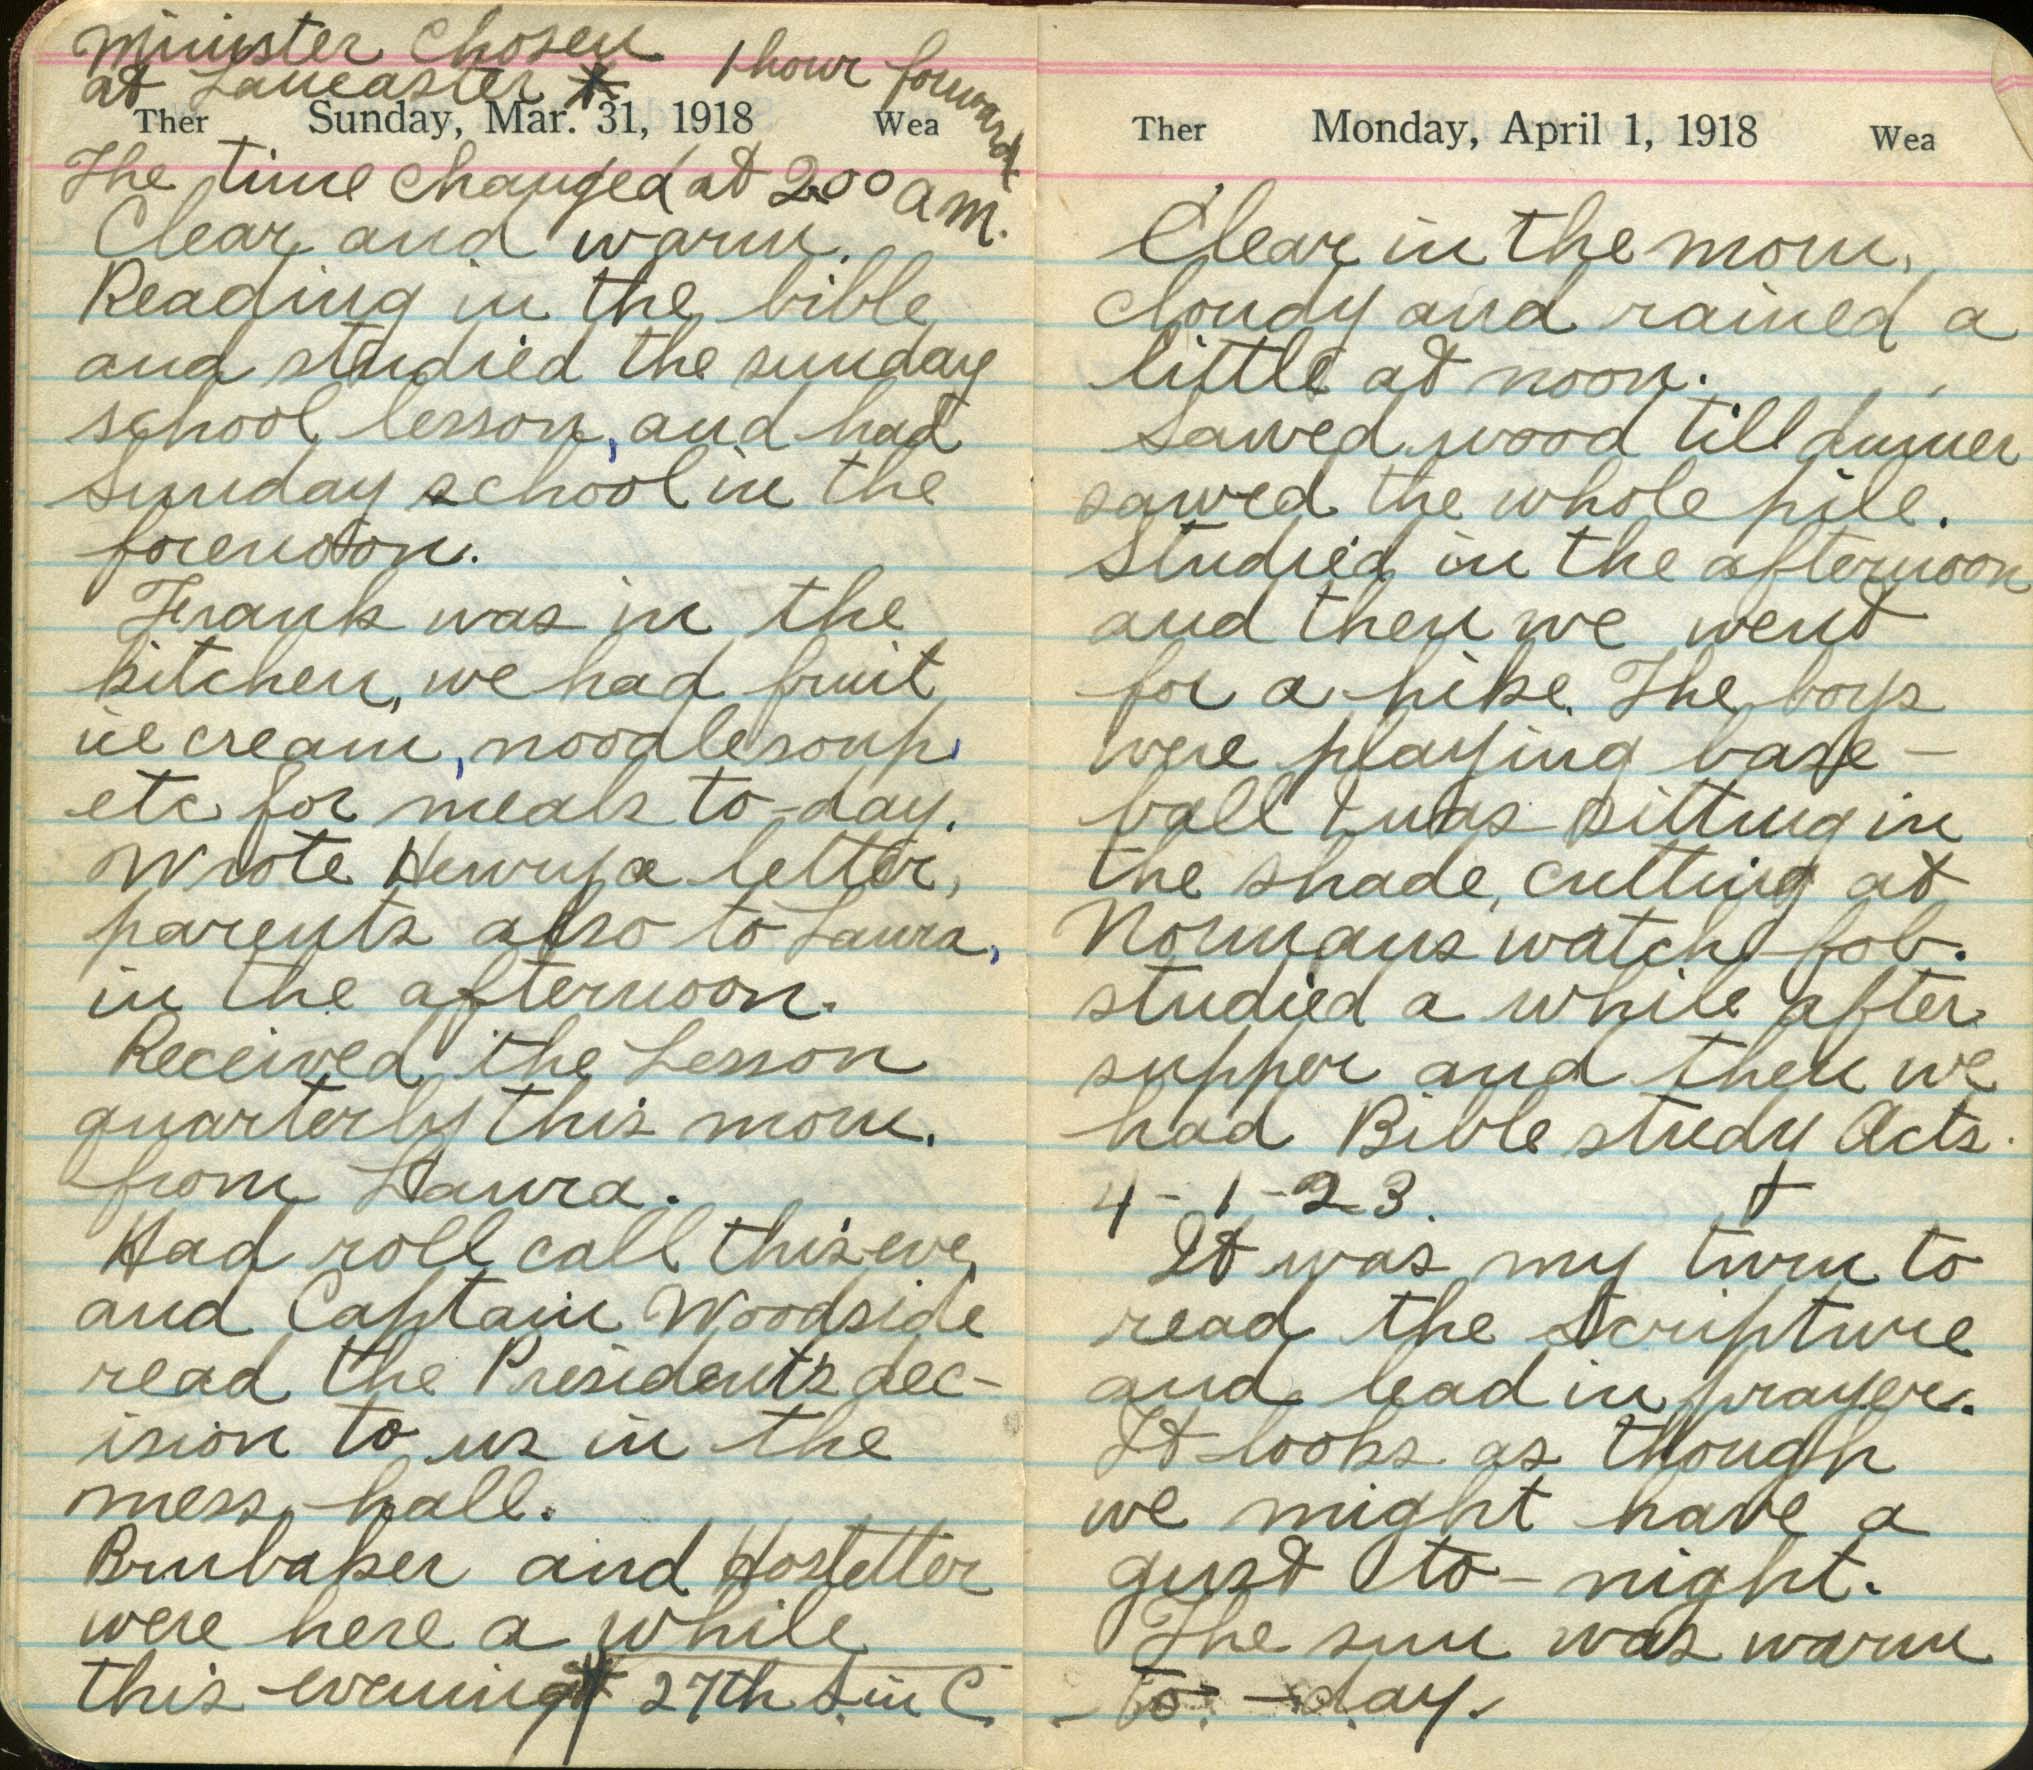 Minister Chosen
at Lancaster
1 hour forward
Ther Sunday, Mar. 31, 1918 Wea
The time changed at 2.00 a m.
Clear and warm.
Reading in the bible
and studied the sunday
school lesson, and had
Sunday school in the
forenoon.
Frank was in the
kitchen, we had fruit
ice cream, noodle soup,
etc for meals to-day.
Wrote Henry a letter,
parents also to Laura,
in the afternoon.
Received the Lesson
quarterly this morn.
from Laura.
Had roll call this eve
and Captain Woodside
read the President's dec-
ision to us in the
mess hall.
Brubaker and Hostetter
were here a while
this evening 27th S. in C.
Ther Monday, April 1, 1918 Wea
Clear in the morn,
cloudy and rained a
little at noon.
Sawed wood till dinner
sawed the whole pile.
Studied in the afternoon
and then we went
for a hike. The boys
were playing base-
ball I was sitting in
the shade, cutting at
Normans watch fob.
studied a while after
supper and then we
had Bible study Acts.
4-1-23.
It was my turn to
read the Scripture
and lead in prayer.
It looks as though
we might have a
gust to-night.
The sun was warm
to-day.